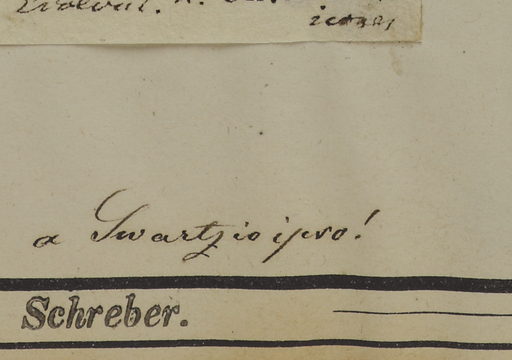 icones
a Swartzio ipso!
Schreber.